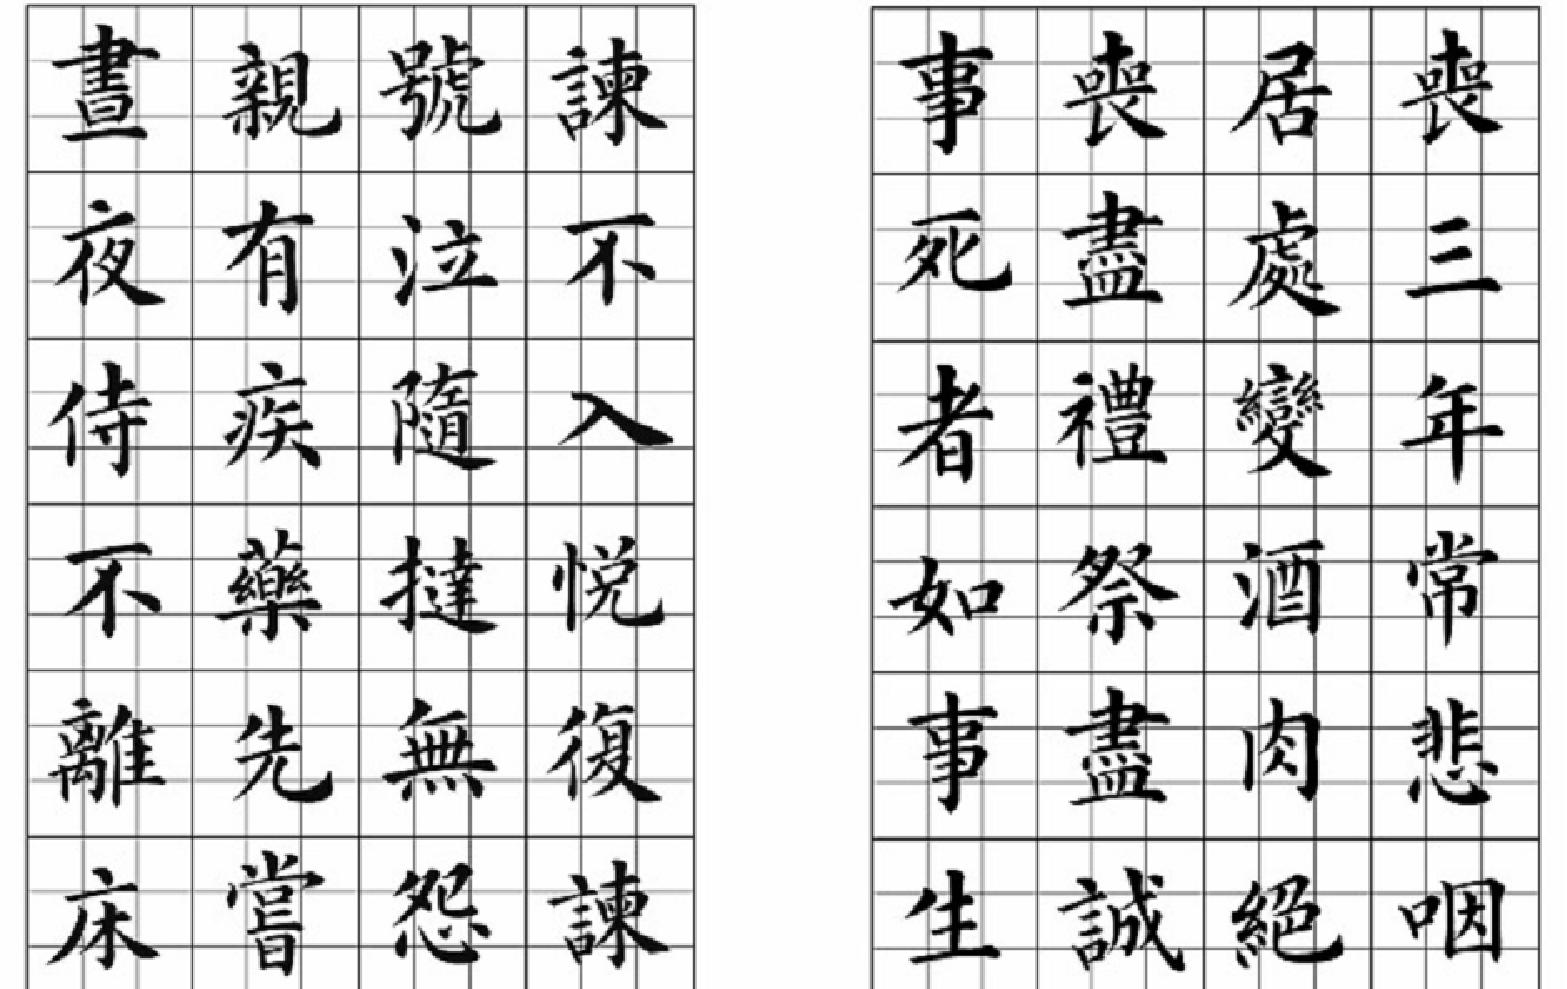 諫不入悦復諫
號泣隨撻無怨
親有疾藥先嘗
晝夜侍不離床
喪三年常悲咽
居處變酒肉絕
喪盡禮祭盡誠
事死者如事生